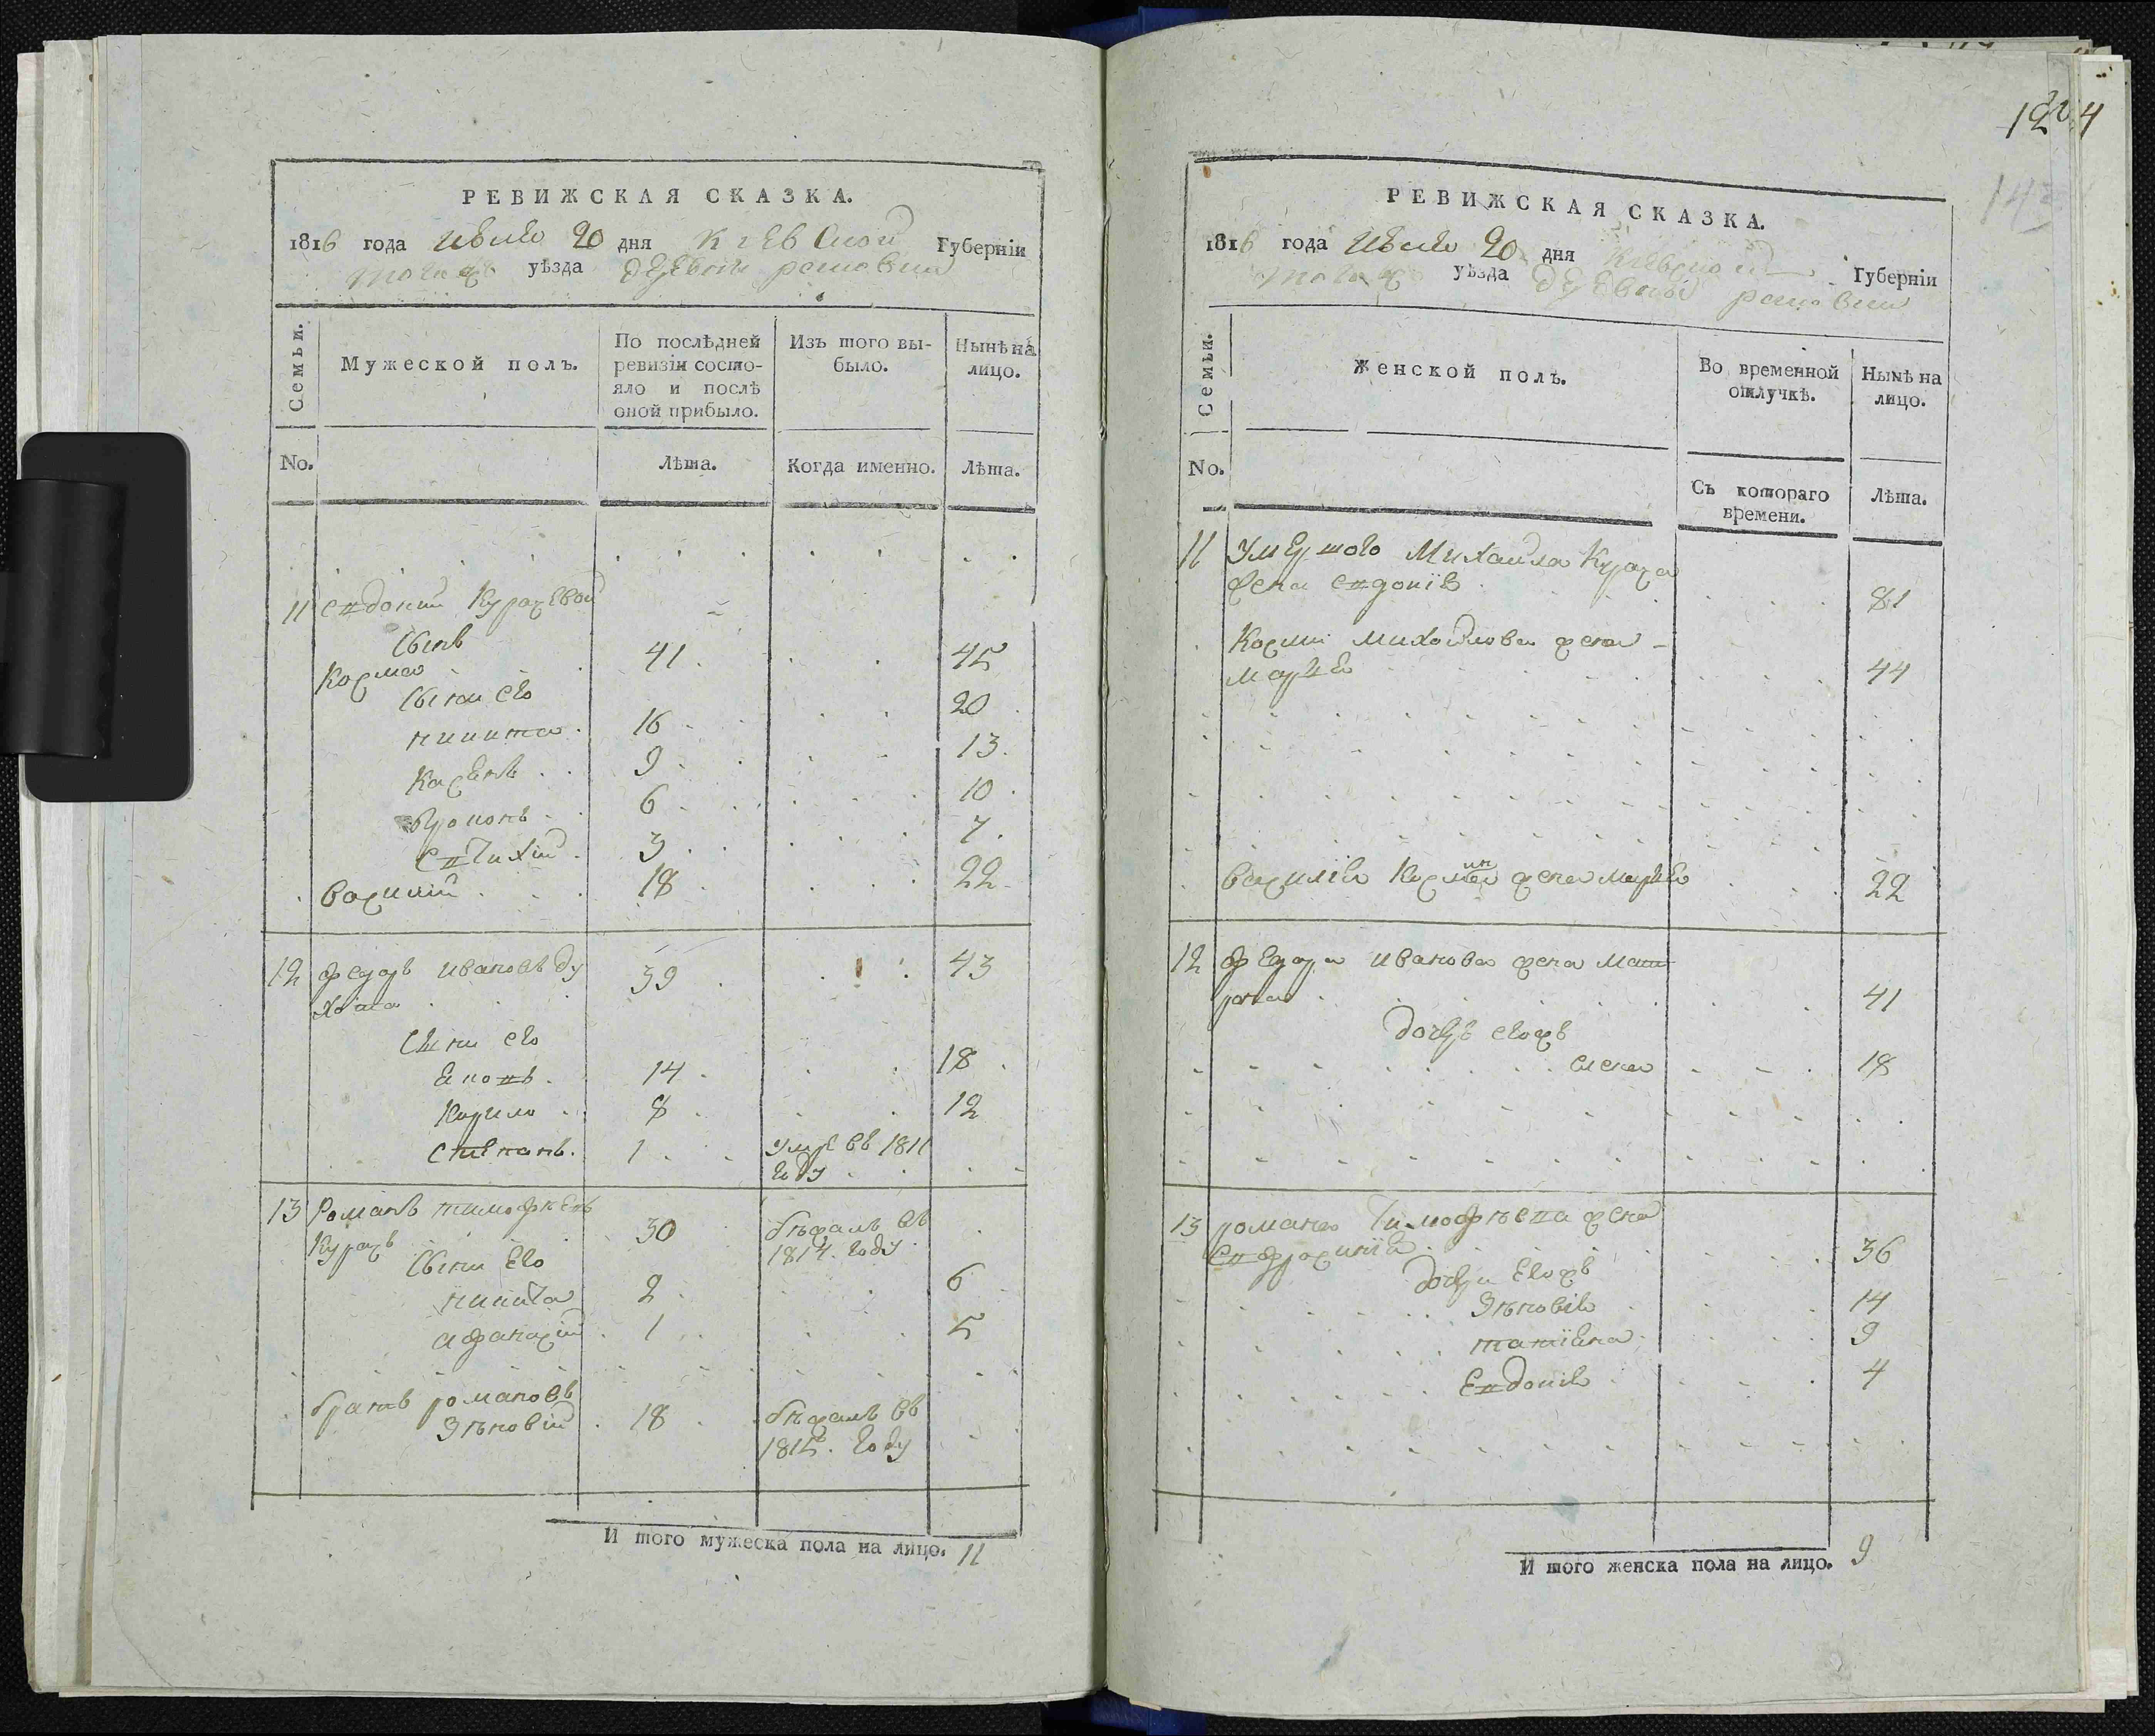 РЕВИЖСКАЯ СКАЗКА.
1816 года Июля 20 дня Киевской Губерніи
тогожъ уѣзда деревни
Семьи.
Мужеской полъ.
По послѣдней
ревизіи состо-
яло и послѣ
оной прибыло.
Изъ того вы-
было.
Нынѣ на
лицо.
No.
Лѣта.
Когда именно.
Лѣта.
11 Евдокіи
Сынъ
Козма 41 45
Сыни его
никита 16 20
9 13
6 10
Евтихій 3 7
василій 18 22
12 федоръ ивановъ ду 39 43
Сыни его
14 18
Кирило 8 12
Степанъ 1 умре въ 1811
году
13 Романъ тимофѣевъ 30 бѣжалъ въ
1814 году
Сыни Его
никита 2 6
афанасій 1 5
братъ романовъ
Зѣновій 18 бѣжалъ въ
1815 году
И того мужеска пола на лицо. 11
1204
143
РЕВИЖСКАЯ СКАЗКА.
1816 года Июля 20 дня Киевской Губерніи
тогожъ уѣзда деревни
Семьи.
Женской полъ.
Во временной
отлучкѣ.
Нынѣ на
лицо.
No.
Съ котораго
времени.
Лѣта.
11 умершого Михаила
жена Евдокія 81
Козми Михайлова жена
Марья 44
василія жена Марья 22
12 Федора иванова жена Мат
рона 41
дочь егожъ
елена 18
13 романа Тимофѣева жена
Евфросинія 36
дочери Егожъ
Зѣновія 14
татіяна 9
Евдокія 4
И того женска пола на лицо. 9